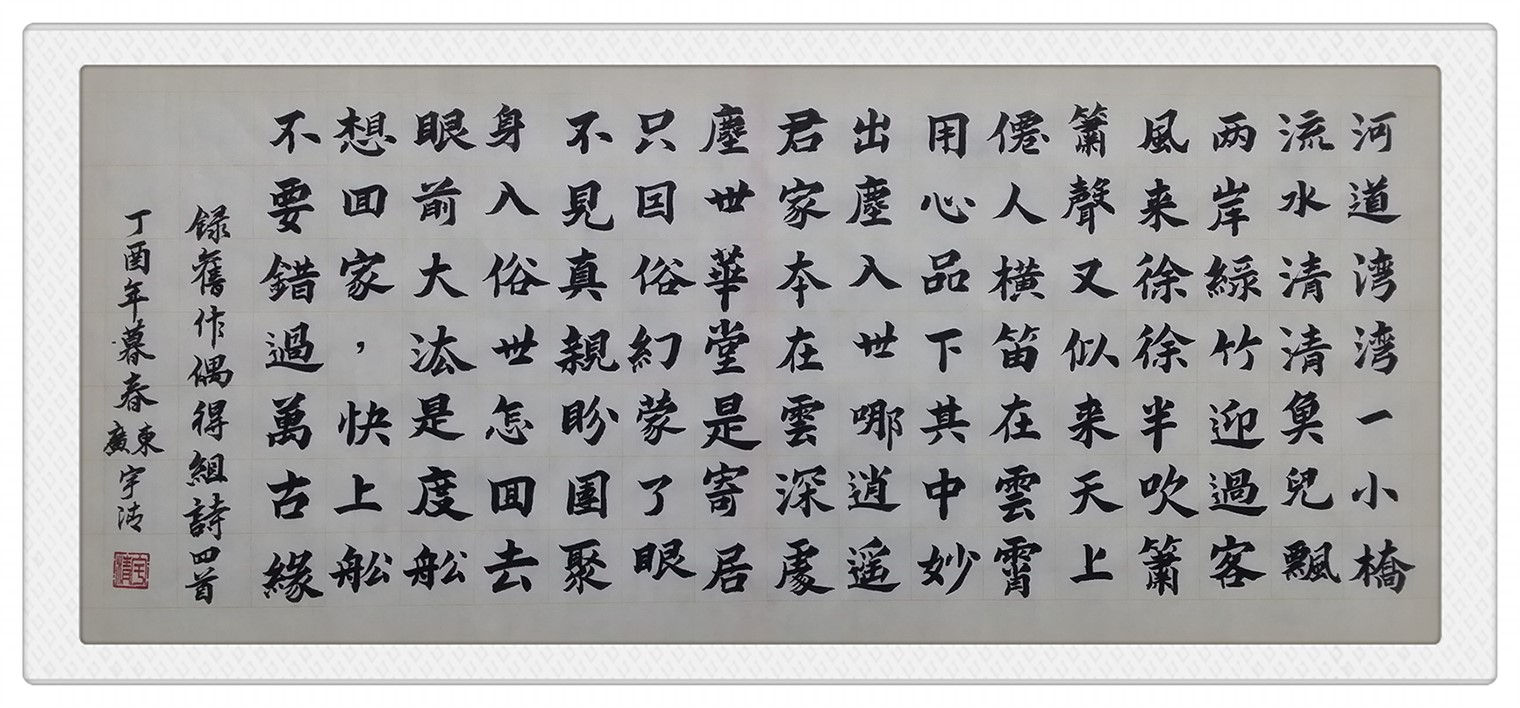 河道湾湾一小橋
流水清清魚兒飄
两岸綠竹迎過客
風来徐徐半吹簫
簫聲又似来天上
僊人橫笛在雲霄
用心品下其中妙
出塵入世哪逍遥
君家本在雲深處
塵世華堂是寄居
只因俗幻蒙了眼
不見真親盼團聚
身入俗世怎回去
眼前大法是度船
想回家，快上船
不要錯過萬古緣
録舊作偶得組詩四首
丁酉年暮春廣東宇清
宇清